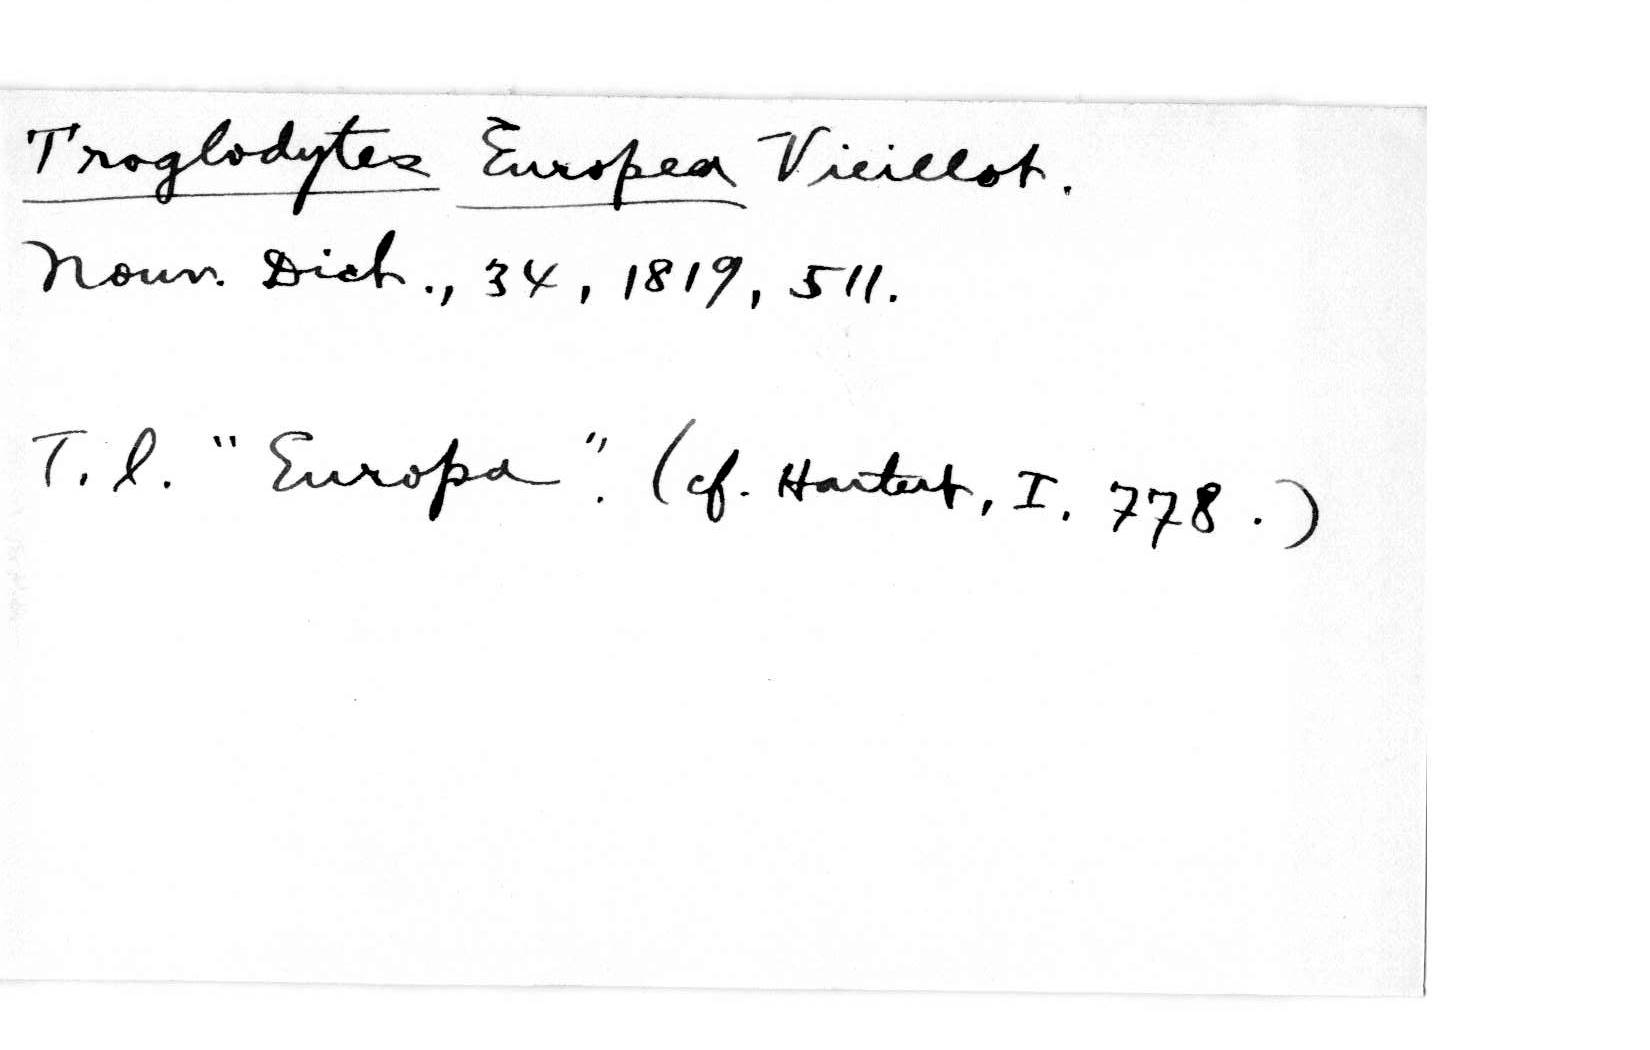 Troglodytes Europea Vieillot.
Nouv. Dict., 34, 1819, 511.
T. l. "Europa". (cf. Hartert, I. 778.)